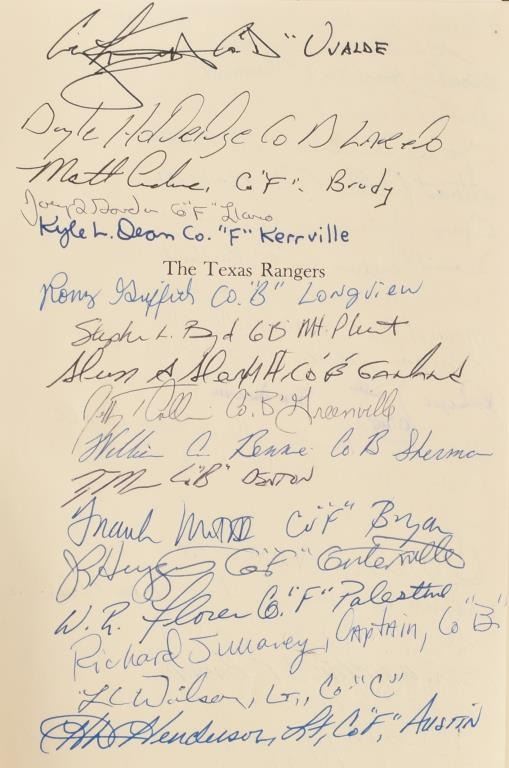 Co "D" UVALDE
Doyle Holdridge Co D LAREDO
Matt Co "F" Brady
Joey D Gordon Co "F" Llano
Kyle L. Dean Co. "F" Kerrville
The Texas Rangers
Ronny Griffith Co. "B" Longview
Stephen L. Boyd Co B Mt. Pleasant
Co "B" Garland
Co. B Greenville
William C. Co B Sherman
Co "B" DENTON
Frank Co "F" Bryan
Co "F" Centerville
W. R. Co. "F" Palestine
Richard Captain, Co "B"
LC Wilson, Lt., Co "C"
Henderson, Lt, Co "F", AUSTIN